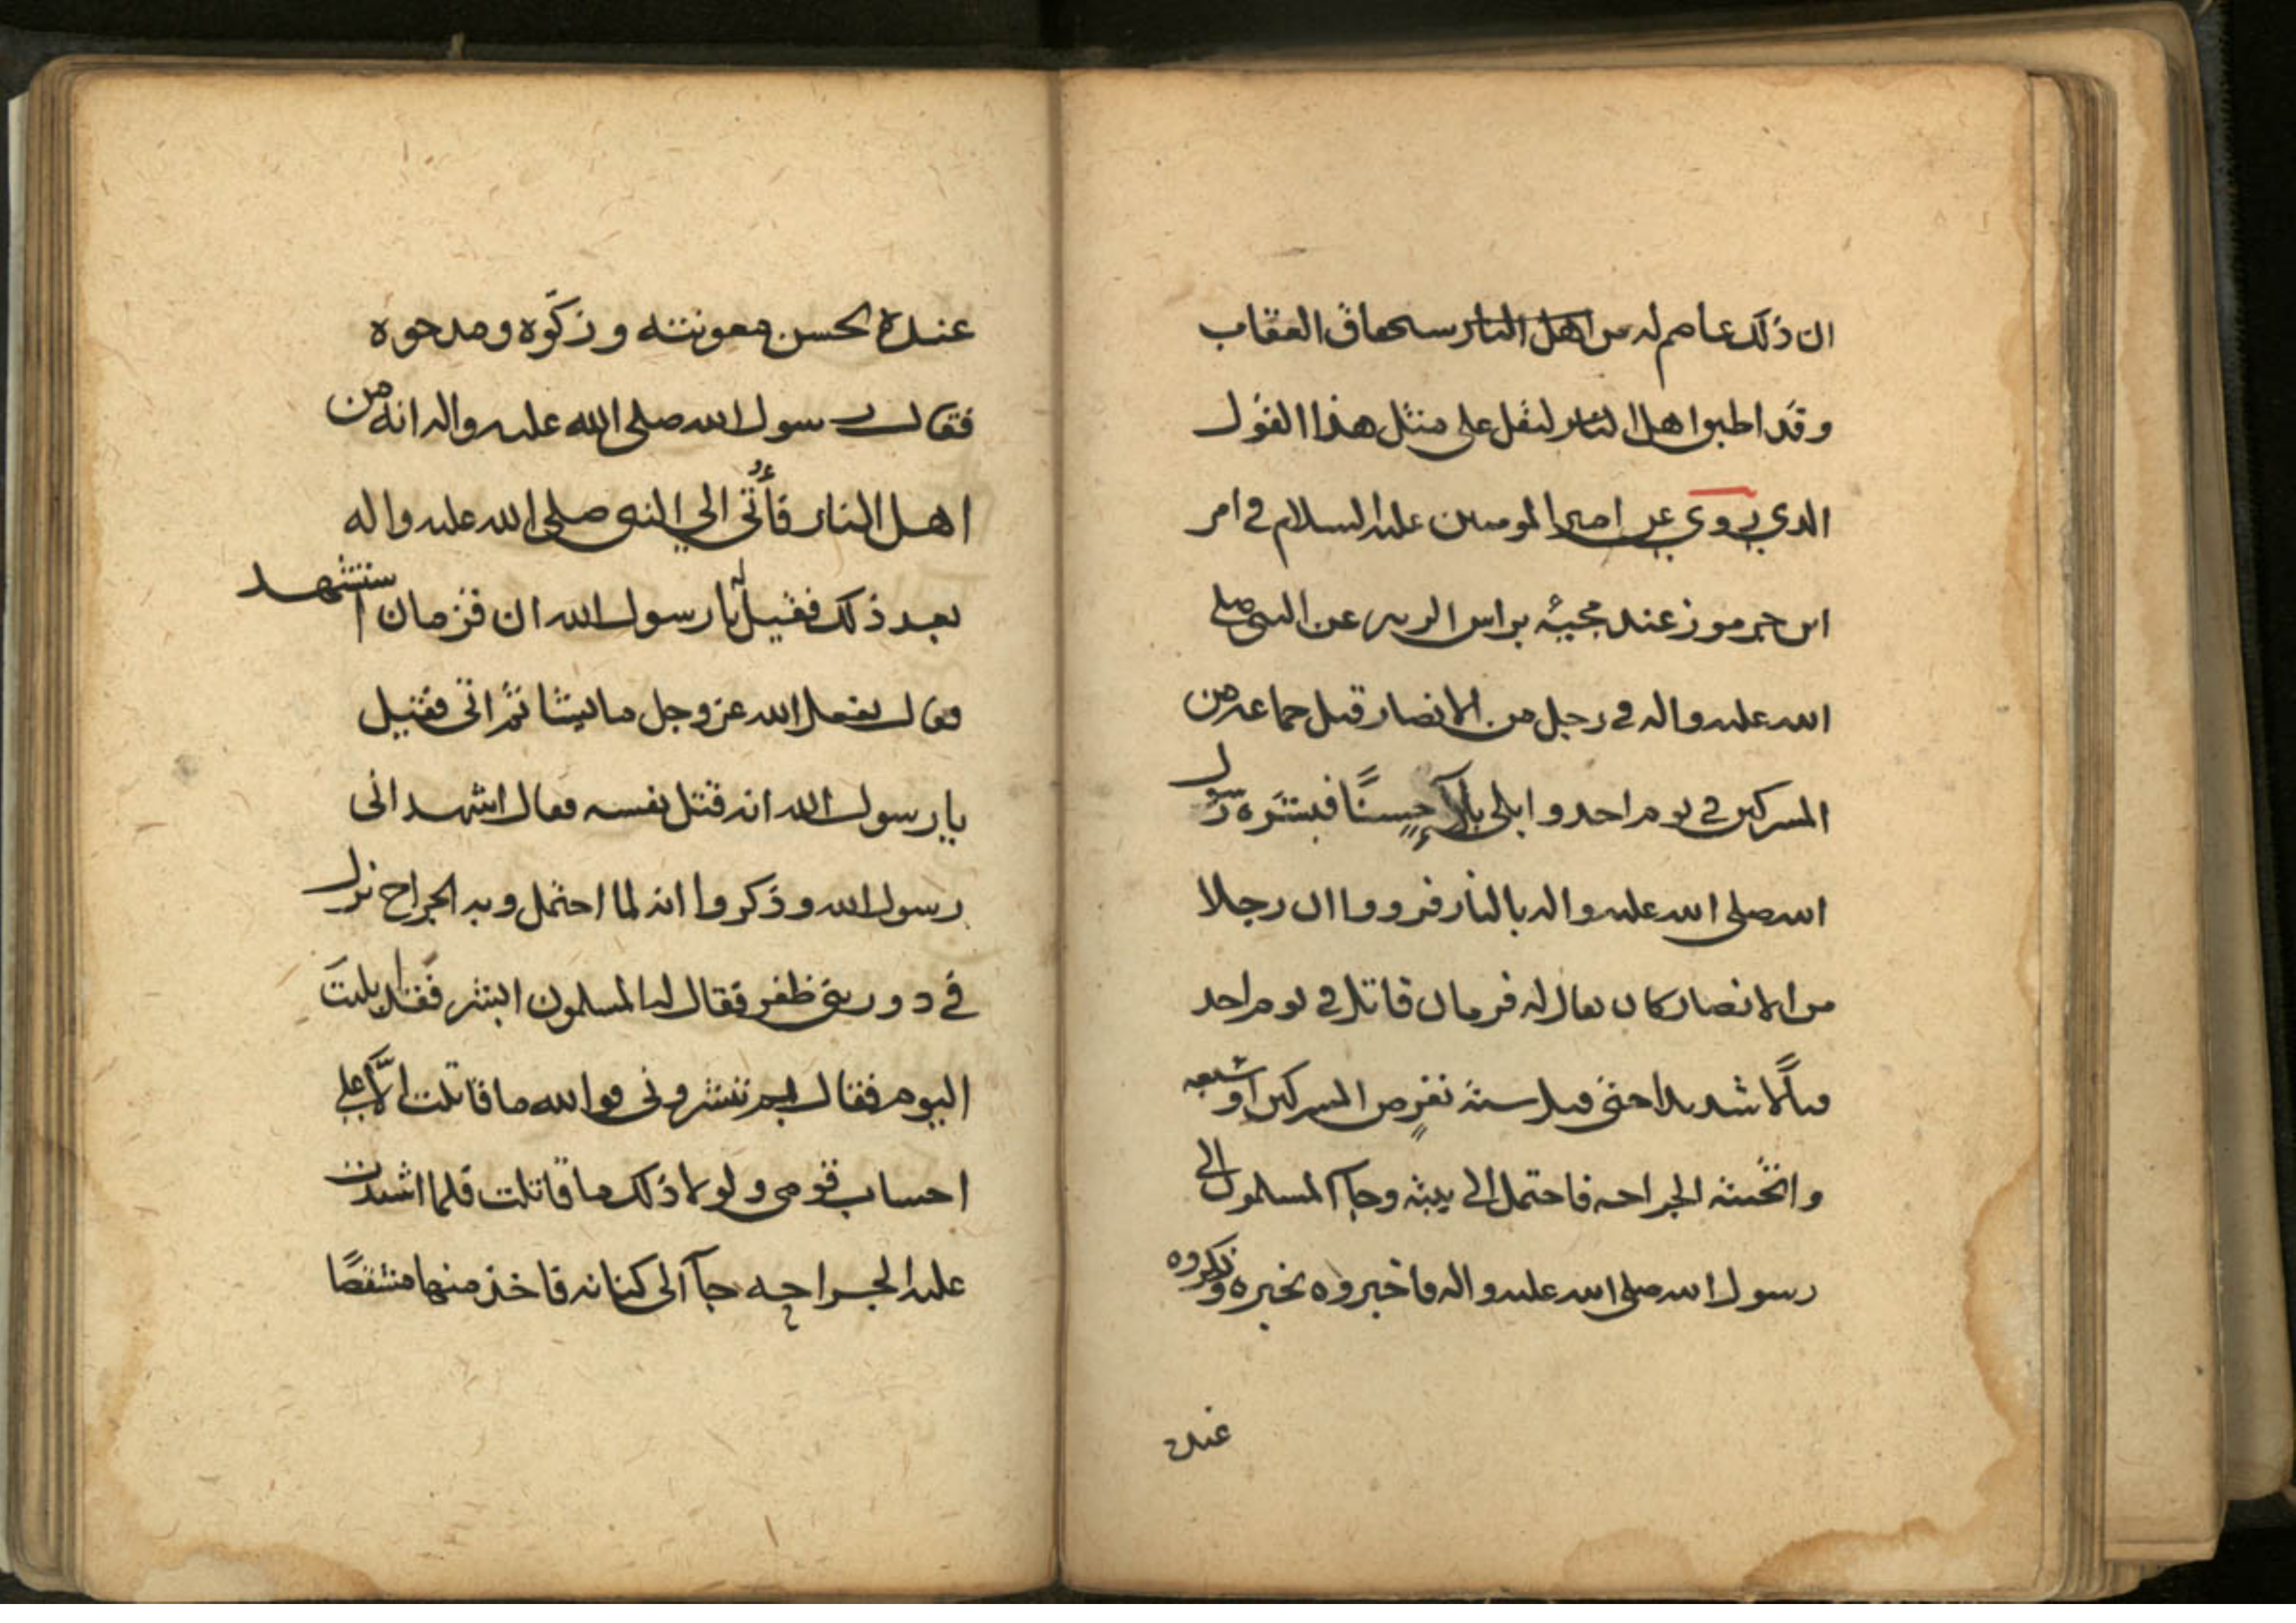 ان ذلك عاصم له من اهل النار سحقاق العقاب
وقد اطبق اهل النار لنقل على مثل هذا القول
الذي يروي عن امير المومنين عليه السلام في امر
ابن جرموز عند مجيئه براس الزبير عن النبي صلى
الله عليه واله في رجل من الانصار قتل جماعة من
المشركين في يوم احد وابلى بلآءً حسنًا فبشره رسول
الله صلى الله عليه واله بالنار فرووا ان رجلا
من الانصار كان يقال له قزمان قاتل في يوم احد
قتالًا شديدا حتى قتل ستة نفرٍ من المشركين او سبعه
واثخنته الجراحه فاحتمل الى بيته وجآ المسلمون الى
رسول الله صلى الله عليه واله فاخبروه بخبره وذكروه
عنده
عنده بحسن معونته وزكّوه ومدحوه
فقال رسول الله صلى الله عليه واله انه من
اهل النار فأُتى الى النبي صلى الله عليه واله
بعد ذلك فقيل له يا رسول الله ان قزمان استشهد
فقال يفعل الله عز وجل ما يشا ثم اتى فقيل
يا رسول الله انه قتل نفسه فقال اشهد انى
رسول الله وذكروا انه لما احتمل وبه الجراح نزل
في دور بنى ظفر فقال له المسلمون ابشر فقد ابليت
اليوم فقال بم تبشرونى فوالله ما قاتلت الّا على
احساب قومى ولولا ذلك ما قاتلت فلما اشتدت
عليه الجراحه جآ الى كنانه فاخذ منها مشقصًا